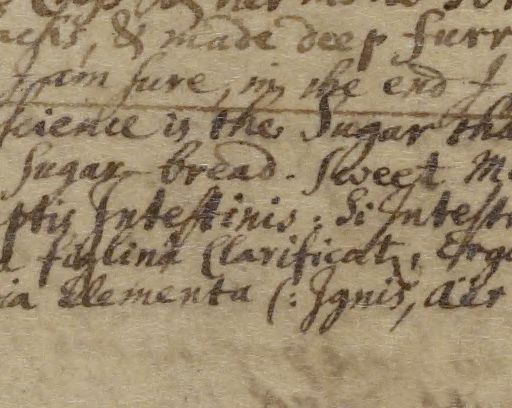 & made deep furr
am sure, in the end I
science is the Sugar tha
Sugar-bread. Sweet M
ptis Intestinis: Si Intest
figlina Clarificat, Ergo
ia Elementa (: Ignis, Aer